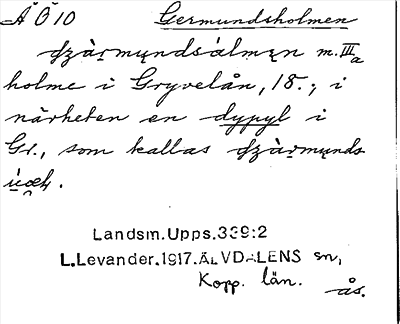 ÅÖ10 Germundsholmen
m. III a
holme i Gryvelån, 18.; i
närheten en dypyl i
Gr., som kallas
Landsm. Upps. 339:2
L. Levander. 1917. ÄLVDALENS sn,
Kopp. län.
ås.